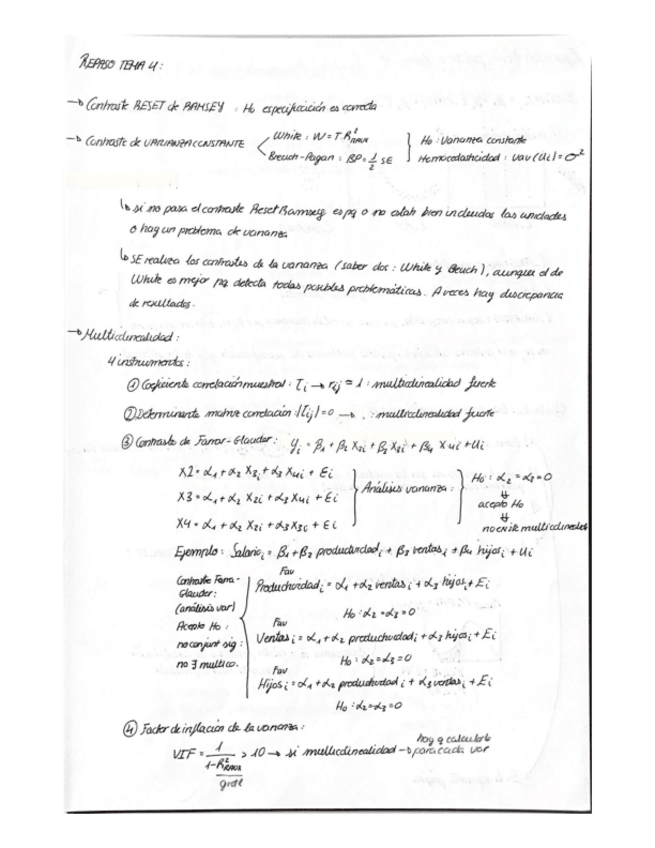 REPASO TEMA 4:
→ Contraste RESET de RAMSEY : H₀ especificación es correcta
→ Contraste de VARIANZA CONSTANTE
White : W = T·R²RAUX
Breuch-Pagan : BP = 1/2 SE
H₀ : Varianza constante
Homocedasticidad : var(Ui) = σ²
↳ si no pasa el contraste Reset Ramsey es pq o no están bien incluidas las unidades
o hay un problema de varianza
↳ SE realiza los contrastes de la varianza (saber dos : White y Beuch), aunque el de
White es mejor pq detecta todas posibles problemáticas. A veces hay discrepancia
de resultados.
→ Multicolinealidad :
4 instrumentos :
① Coeficiente correlación muestral : rij → rij ≈ 1 : multicolinealidad fuerte
② Determinante matriz correlación : |rij| = 0 → : multicolinealidad fuerte
③ Contraste de Farrar-Glauber : yi = β1 + β2 X2i + β3 X3i + β4 X4i + Ui
X2 = α1 + α2 X3i + α3 X4i + Ei
X3 = α1 + α2 X2i + α3 X4i + Ei
X4 = α1 + α2 X2i + α3 X3i + Ei
Análisis varianza :
H₀ : α2 = α3 = 0
⇓
acepto H₀
⇓
no existe multicolinealidad
Ejemplo : Salario i = β1 + β2 productividad i + β3 ventas i + β4 hijos i + Ui
Contraste Farra-
Glauber :
(análisis var)
Acepto H₀ :
no conjunt sig :
no ∃ multico.
Fav
Productividad i = α1 + α2 ventas i + α3 hijos i + Ei
H₀ : α2 = α3 = 0
Fav
Ventas i = α1 + α2 productividad i + α3 hijos i + Ei
H₀ : α2 = α3 = 0
Fav
Hijos i = α1 + α2 productividad i + α3 ventas i + Ei
H₀ : α2 = α3 = 0
④ Factor de inflación de la varianza :
VIF = 1/(1-R²RAUX) > 10 → si multicolinealidad → hay q calcularlo para cada var
gretl